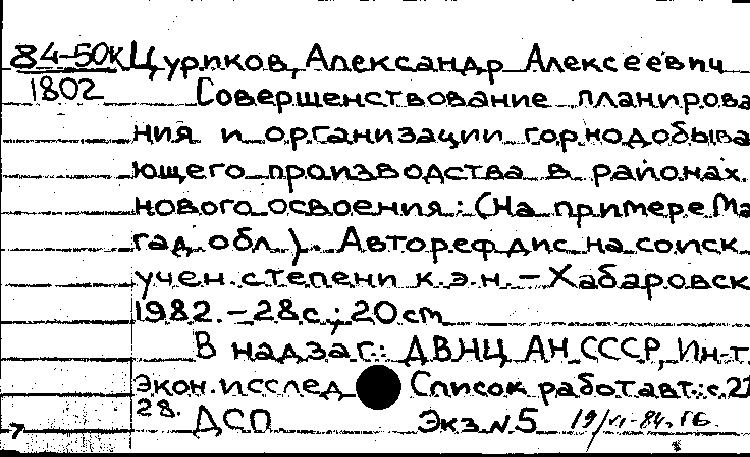 84-50К Цуриков, Александр Алексеевич
1802 Совершенствование планирова
ния и организации горнодобыва
ющего производства в районах
нового освоения: (На примере Ма
гад. обл.). Автореф дис на соиск
учен. степени к.э.н. – Хабаровск
1982. – 28с.; 20 см
В надзаг.: ДВНЦ АН СССР, Ин-т
экон. исслед Список работ авт.: с. 21
28. ДСП Экз №5 19/VI-84г.
7